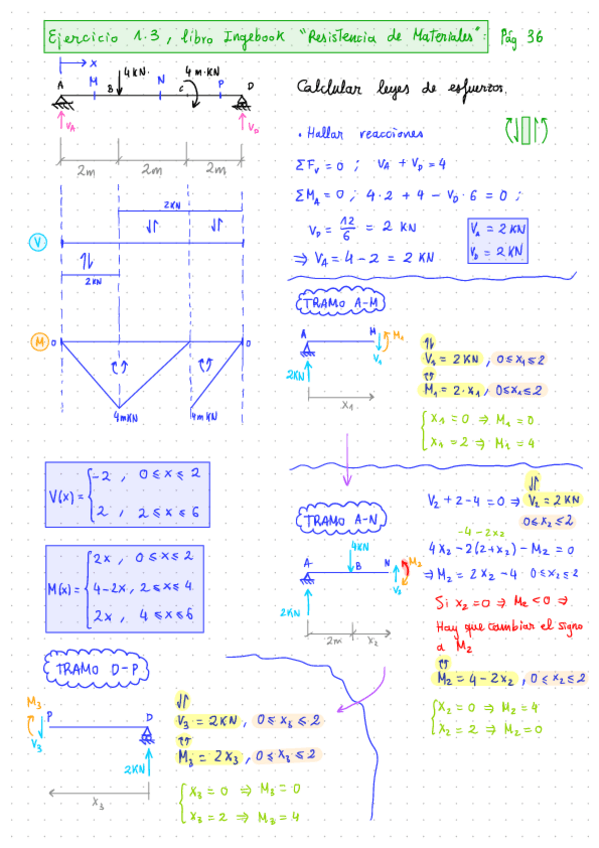 Ejercicio 1.3, libro Ingebook "Resistencia de Materiales": Pág 36
x
A M B 4KN. N C 4 m·KN P D
V_A V_D
2m 2m 2m
Calcular leyes de esfuerzos.
• Hallar reacciones
ΣF_v = 0 ; V_A + V_D = 4
ΣM_A = 0 ; 4·2 + 4 - V_D·6 = 0 ;
V_D = 12/6 = 2 KN
⇒ V_A = 4 - 2 = 2 KN
V_A = 2 KN
V_D = 2 KN
2KN
V
↿⇂
2KN
M 0 0
4mKN 4mKN
V(x) = { -2 , 0 ≤ x ≤ 2
2 , 2 ≤ x ≤ 6
M(x) = { 2x , 0 ≤ x ≤ 2
4-2x, 2 ≤ x ≤ 4
2x , 4 ≤ x ≤ 6
TRAMO A-M
A M M₁
V₁
2KN
x₁
V₁ = 2KN , 0≤x₁≤2
M₁ = 2·x₁ , 0≤x₁≤2
{ x₁ = 0 ⇒ M₁ = 0
x₁ = 2 ⇒ M₁ = 4
TRAMO A-N
4KN
A B N M₂
V₂
2KN
2m x₂
V₂ + 2 - 4 = 0 ⇒ V₂ = 2KN
0≤x₂≤2
-4-2x₂
4x₂ - 2(2+x₂) - M₂ = 0
⇒ M₂ = 2x₂ - 4 0≤x₂≤2
Si x₂ = 0 ⇒ M₂ < 0 ⇒
Hay que cambiar el signo
a M₂
M₂ = 4 - 2x₂ , 0≤x₂≤2
{ x₂ = 0 ⇒ M₂ = 4
x₂ = 2 ⇒ M₂ = 0
TRAMO D-P
M₃ P D
V₃
2KN
x₃
V₃ = 2KN , 0 ≤ x₃ ≤ 2
M₃ = 2x₃ , 0 ≤ x₃ ≤ 2
{ x₃ = 0 ⇒ M₃ = 0
x₃ = 2 ⇒ M₃ = 4